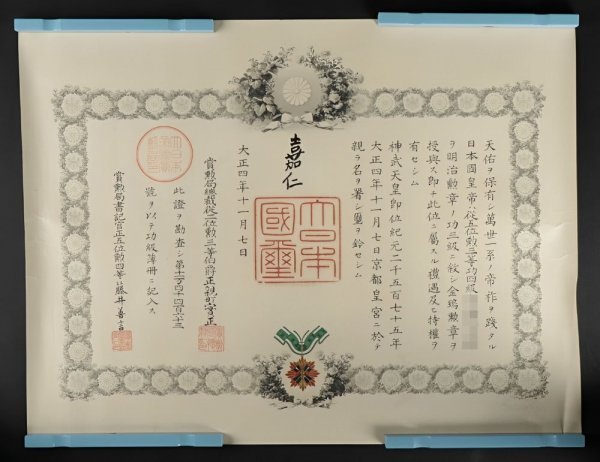 天佑ヲ保有シ萬世一系ノ帝祚ヲ踐タル
日本國皇帝ハ從五位勲三等功四級
ヲ明治勲章ノ功三級ニ敍シ金鵄勲章ヲ
授與ス即チ此位ニ屬スル禮遇及ヒ特權ヲ
有セシム
神武天皇即位紀元二千五百七十五年
大正四年十一月七日京都皇宮ニ於テ
親ラ名ヲ署シ璽ヲ鈐セシム
嘉仁
大日本國璽
大正四年十一月七日
賞勲局總裁從二位勲三等伯爵正親町實正
此證ヲ勘査シ第十二万四千四百六十三
號ヲ以テ功級簿冊ニ記入ス
賞勲局書記官正五位勲四等藤井善言